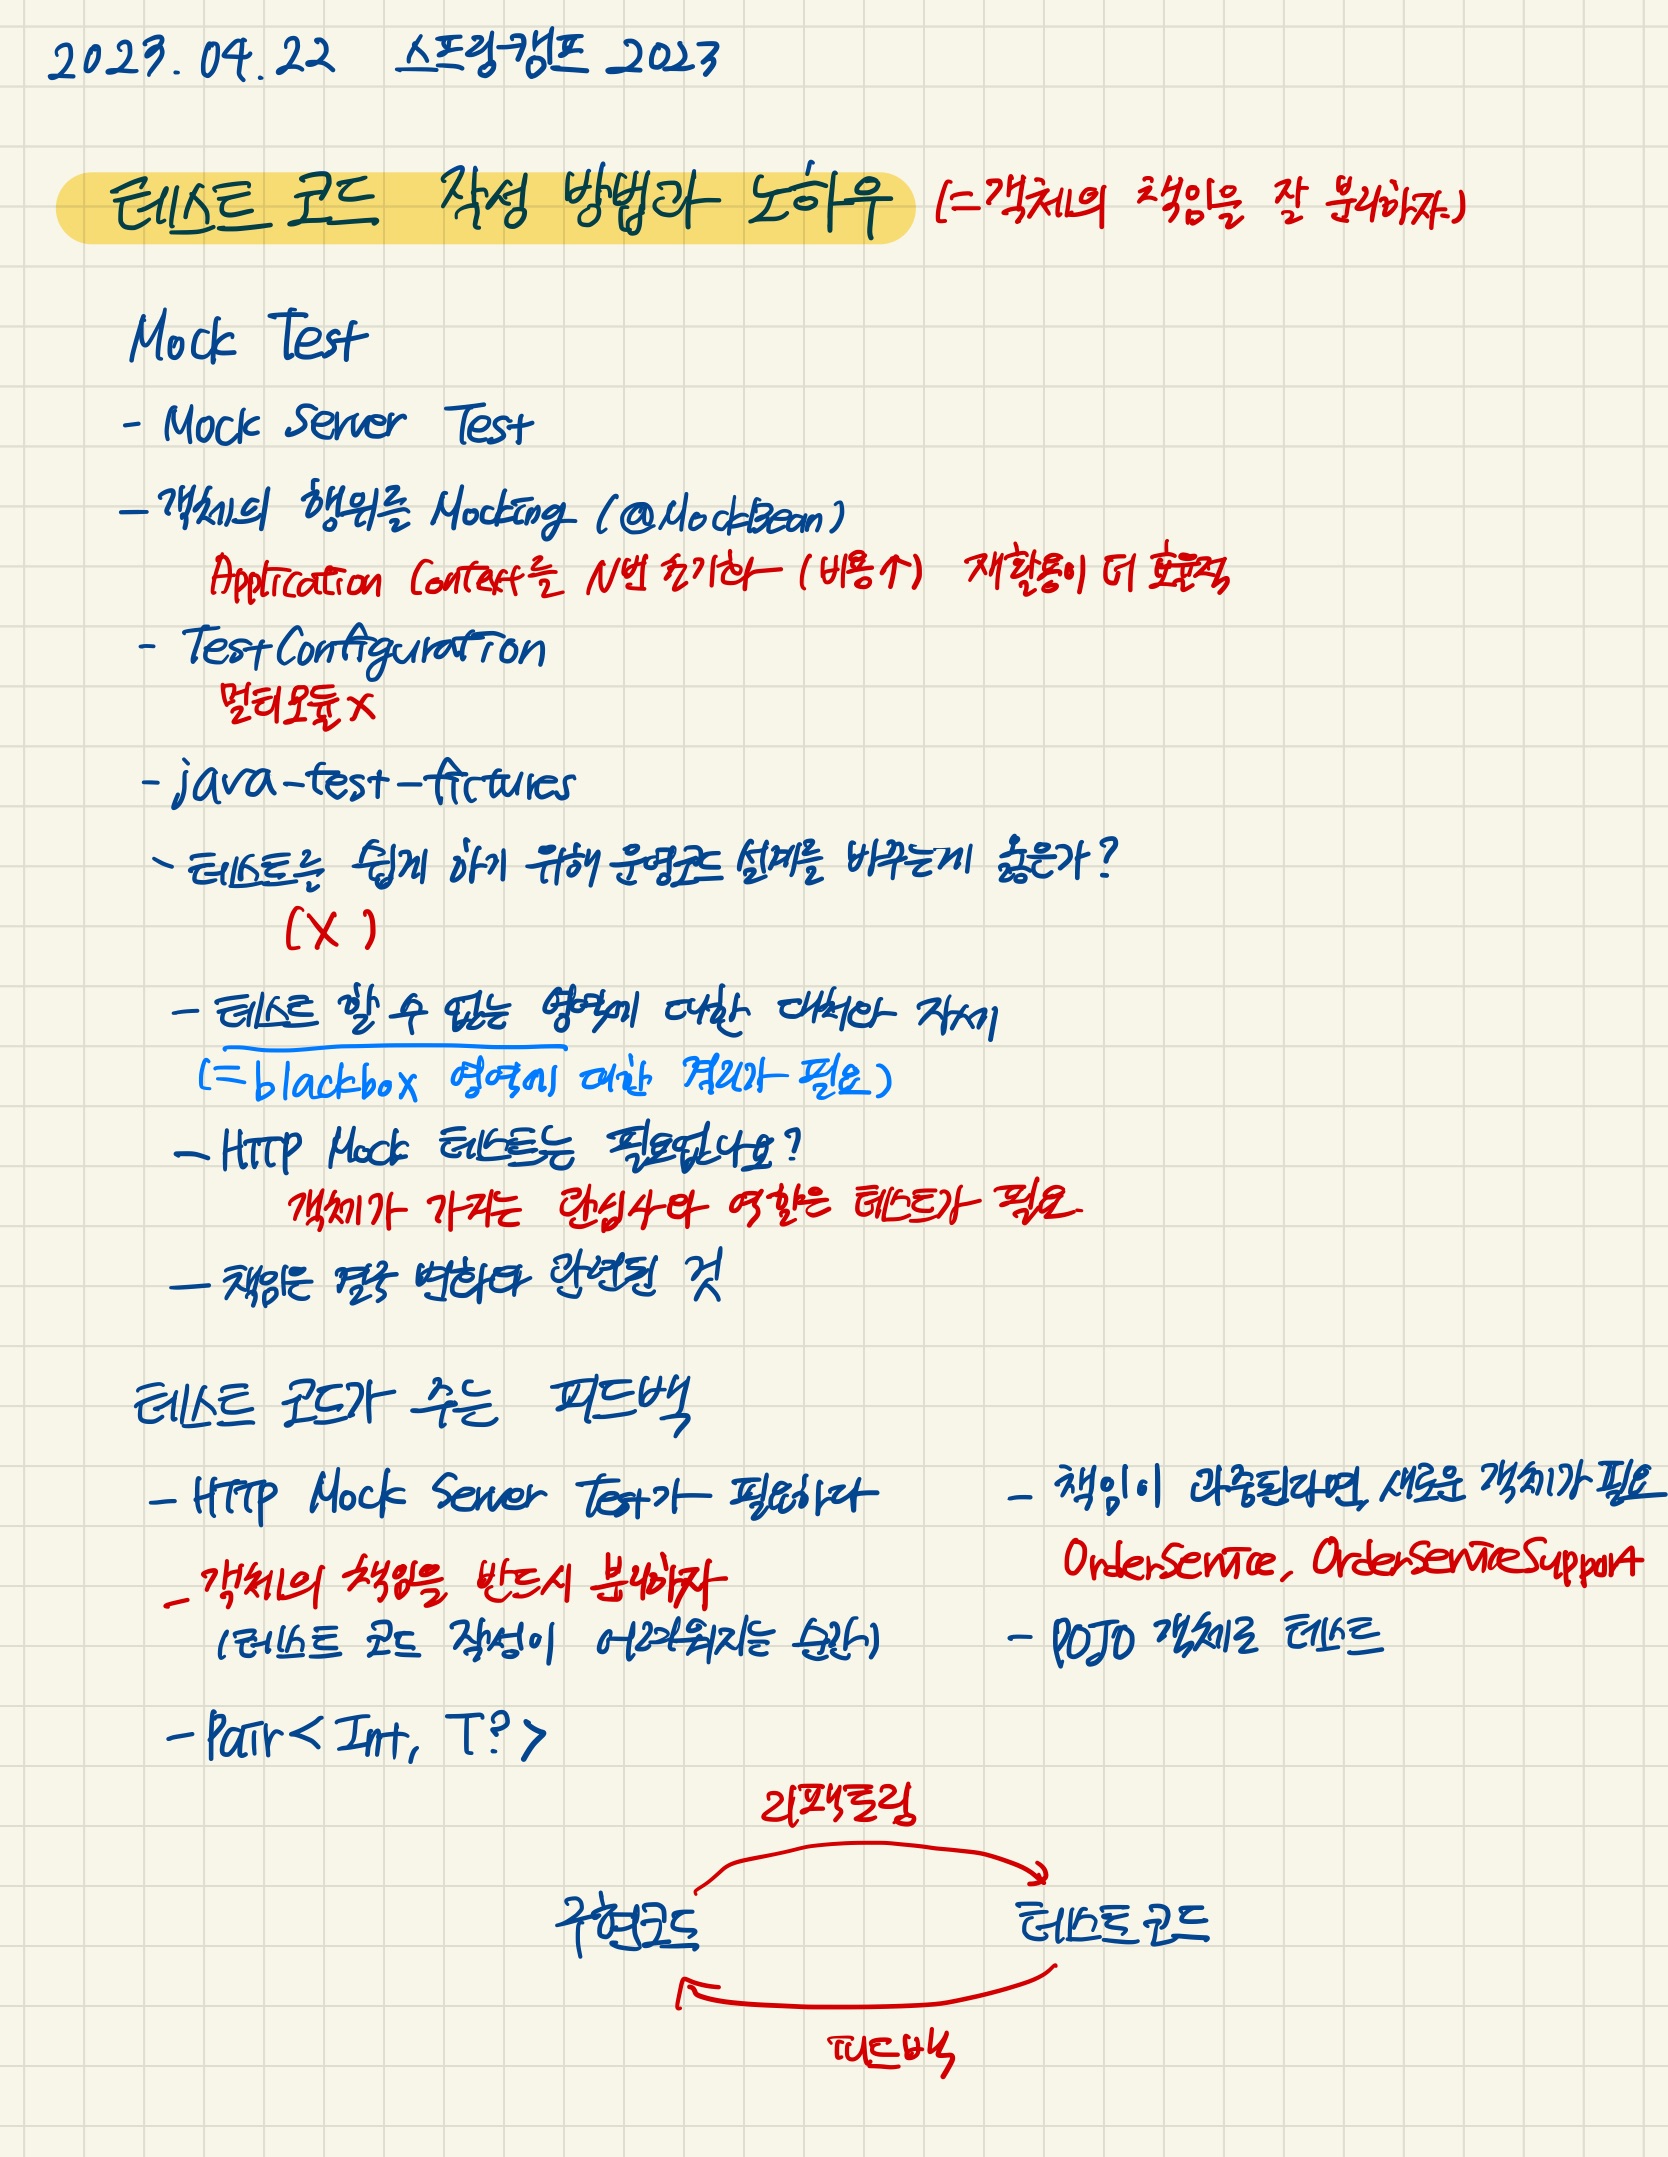 2023.04.22 스프링캠프 2023
테스트 코드 작성 방법과 노하우 (=객체의 책임을 잘 분리하자)
Mock Test
- Mock Server Test
- 객체의 행위를 Mocking (@MockBean)
Application Context를 N번 초기화 (비용↑) 재활용이 더 효율적
- TestConfiguration
멀티모듈 X
- java-test-fixtures
- 테스트를 쉽게 하기 위해 운영코드 설계를 바꾸는게 옳은가?
(X)
- 테스트 할 수 없는 영역에 대한 대처와 자세
(=blackbox 영역에 대한 격리가 필요)
- HTTP Mock 테스트는 필요없나요?
객체가 가지는 관심사와 역할은 테스트가 필요
- 책임은 결국 변화와 관련된 것
테스트 코드가 주는 피드백
- HTTP Mock Server Test가 필요하다
- 객체의 책임을 반드시 분리하자
(테스트 코드 작성이 어려워지는 순간)
- Pair<Int, T?>
- 책임이 과중된다면, 새로운 객체가 필요
OrderService, OrderServiceSupport
- POJO 객체로 테스트
리팩토링
구현코드 테스트코드
피드백